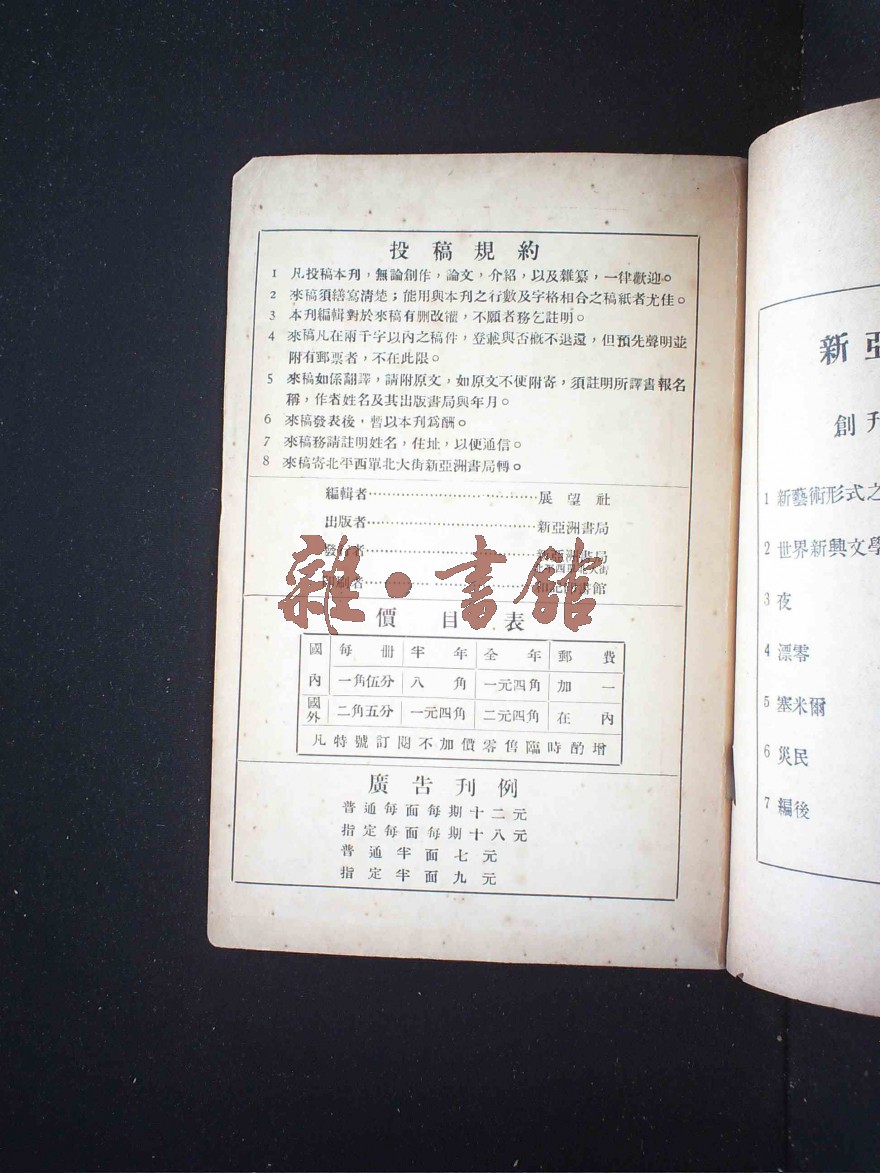 投稿規約
1 凡投稿本刊，無論創作，論文，介紹，以及雜纂，一律歡迎。
2 來稿須繕寫清楚；能用與本刊之行數及字格相合之稿紙者尤佳。
3 本刊編輯對於來稿有删改權，不願者務乞註明。
4 來稿凡在兩千字以內之稿件，登載與否概不退還，但預先聲明並
附有郵票者，不在此限。
5 來稿如係翻譯，請附原文，如原文不便附寄，須註明所譯書報名
稱，作者姓名及其出版書局與年月。
6 來稿發表後，暫以本刊爲酬。
7 來稿務請註明姓名，住址，以便通信。
8 來稿寄北平西單北大街新亞洲書局轉。
編輯者……………………………展望社
出版者……………………………新亞洲書局
發行者……………………………新亞洲書局
北平西單北大街
印刷者……………………………和記印書館
雜·書館
價目表
國內 每冊 半年 全年 郵費
一角伍分 八角 一元四角 加一
國外 二角五分 一元四角 二元四角 在內
凡特號訂閱不加價零售臨時酌增
廣告刊例
普通每面每期十二元
指定每面每期十八元
普通半面七元
指定半面九元
新亞
創刊
1 新藝術形式之
2 世界新興文學
3 夜
4 漂零
5 塞米爾
6 災民
7 編後